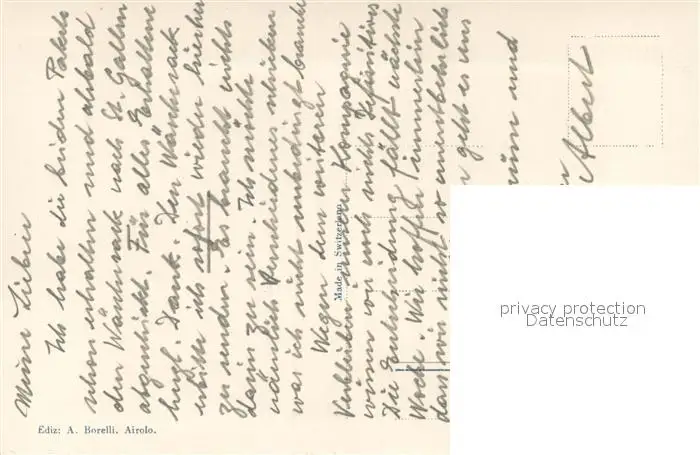 Meine Lieben
Ich habe die beiden Pakete
schon erhalten und alsbald
den Wäschesack nach St. Gallen
abgeschickt. Für alles Erhaltene
herzl. Dank. Den Wäschesack
bitte ich sofort wieder hierher
zu senden. Es braucht nichts
darin zu sein. Ich möchte
nämlich Verschiedenes schicken
was ich nicht unbedingt brauche
Wegen dem weiteren
Verbleiben in der Kompagnie
wissen wir noch nichts Definitives
Die Entscheidung fällt nächste
Woche. Wir hoffen immerhin
dass wir nicht so unentbehrlich
geht es uns
und
Albert
Made in Switzerland
Ediz: A. Borelli. Airolo.
privacy protection
Datenschutz